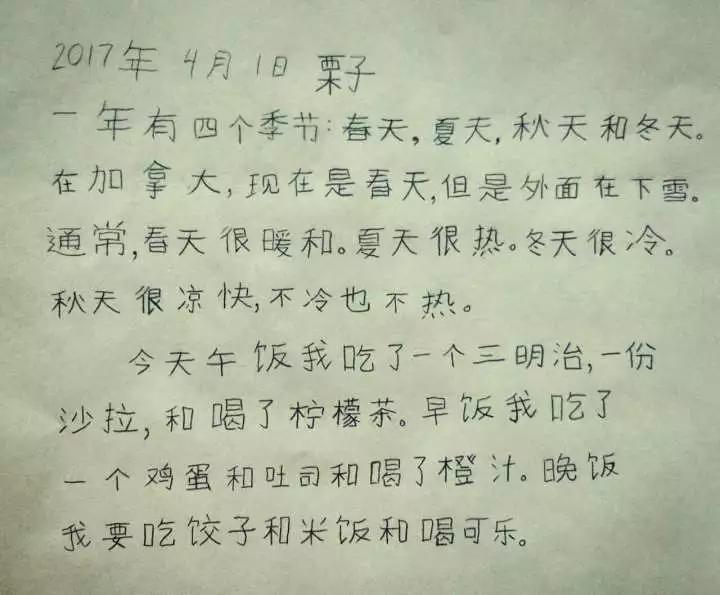 2017年 4月1日 栗子
一年有四个季节:春天,夏天,秋天和冬天。
在加拿大,现在是春天,但是外面在下雪。
通常,春天很暖和。夏天很热。冬天很冷。
秋天很凉快,不冷也不热。
今天午饭我吃了一个三明治,一份
沙拉,和喝了柠檬茶。早饭我吃了
一个鸡蛋和吐司和喝了橙汁。晚饭
我要吃饺子和米饭和喝可乐。